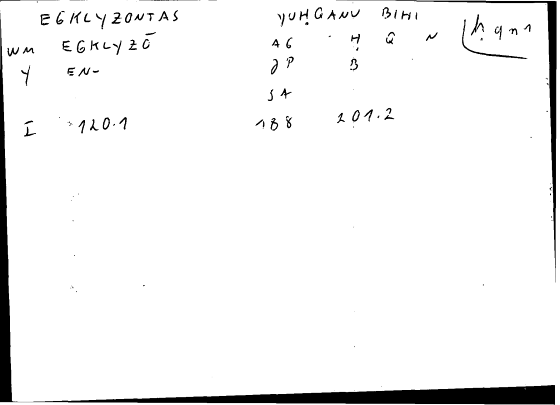 EGKLYZONTAS YUḤGANU BIHI ḥqn1
WM EGKLYZŌ AG Ḥ Q N
Y EN- JP B
SA
I 120.1 188 201.2